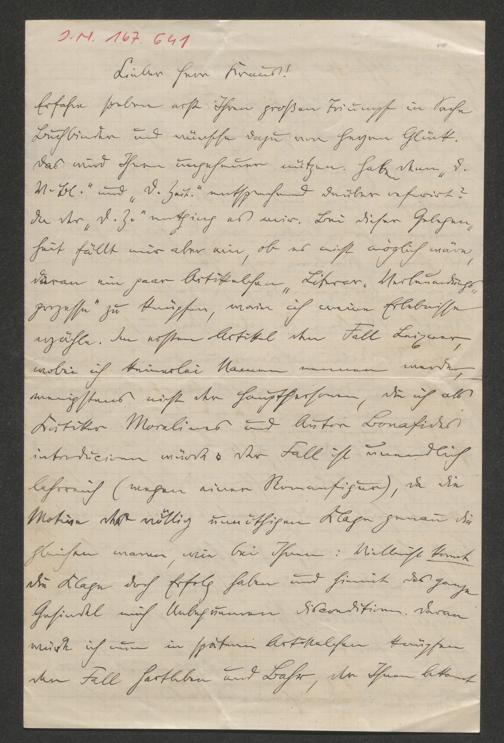 J.N. 167.641
Lieber Herr Kraus!
Erfahre soeben erst Ihren großen Triumpf in Sache
Buchbinder und wünsche dazu von Herzen Glück.
Das wird Ihnen ungeheuer nützen. Hat denn „D.
V-bl." und „D. Zeit." entsprechend darüber referirt?
In der „D. Z." entging es mir. Bei dieser Gelegen„
heit fällt mir aber ein, ob es nicht möglich wäre,
daran ein paar Artikelchen „Literar. Verleumdungs„
prozesse" zu knüpfen, worin ich meine Erlebnisse
erzähle. Im ersten Artikel den Fall
wobei ich keinerlei Namen nennen werde,
wenigstens nicht der Hauptpersonen, die ich als
Kritiker Moralinus und Autor Bonafides
introduciren würde. Der Fall ist unendlich
lehrreich (wegen einer Romanfigur), da die
Motive der völlig unnöthigen Klage genau die
gleichen waren, wie bei Ihnen: Vielleicht konnte
die Klage doch Erfolg haben und hiemit das ganze
Gesindel mich Unbequemen discreditiren. Daran
würde ich nun in spätern Artikelchen knüpfen
den Fall Hartleben und Bahr, der Ihnen bekannt